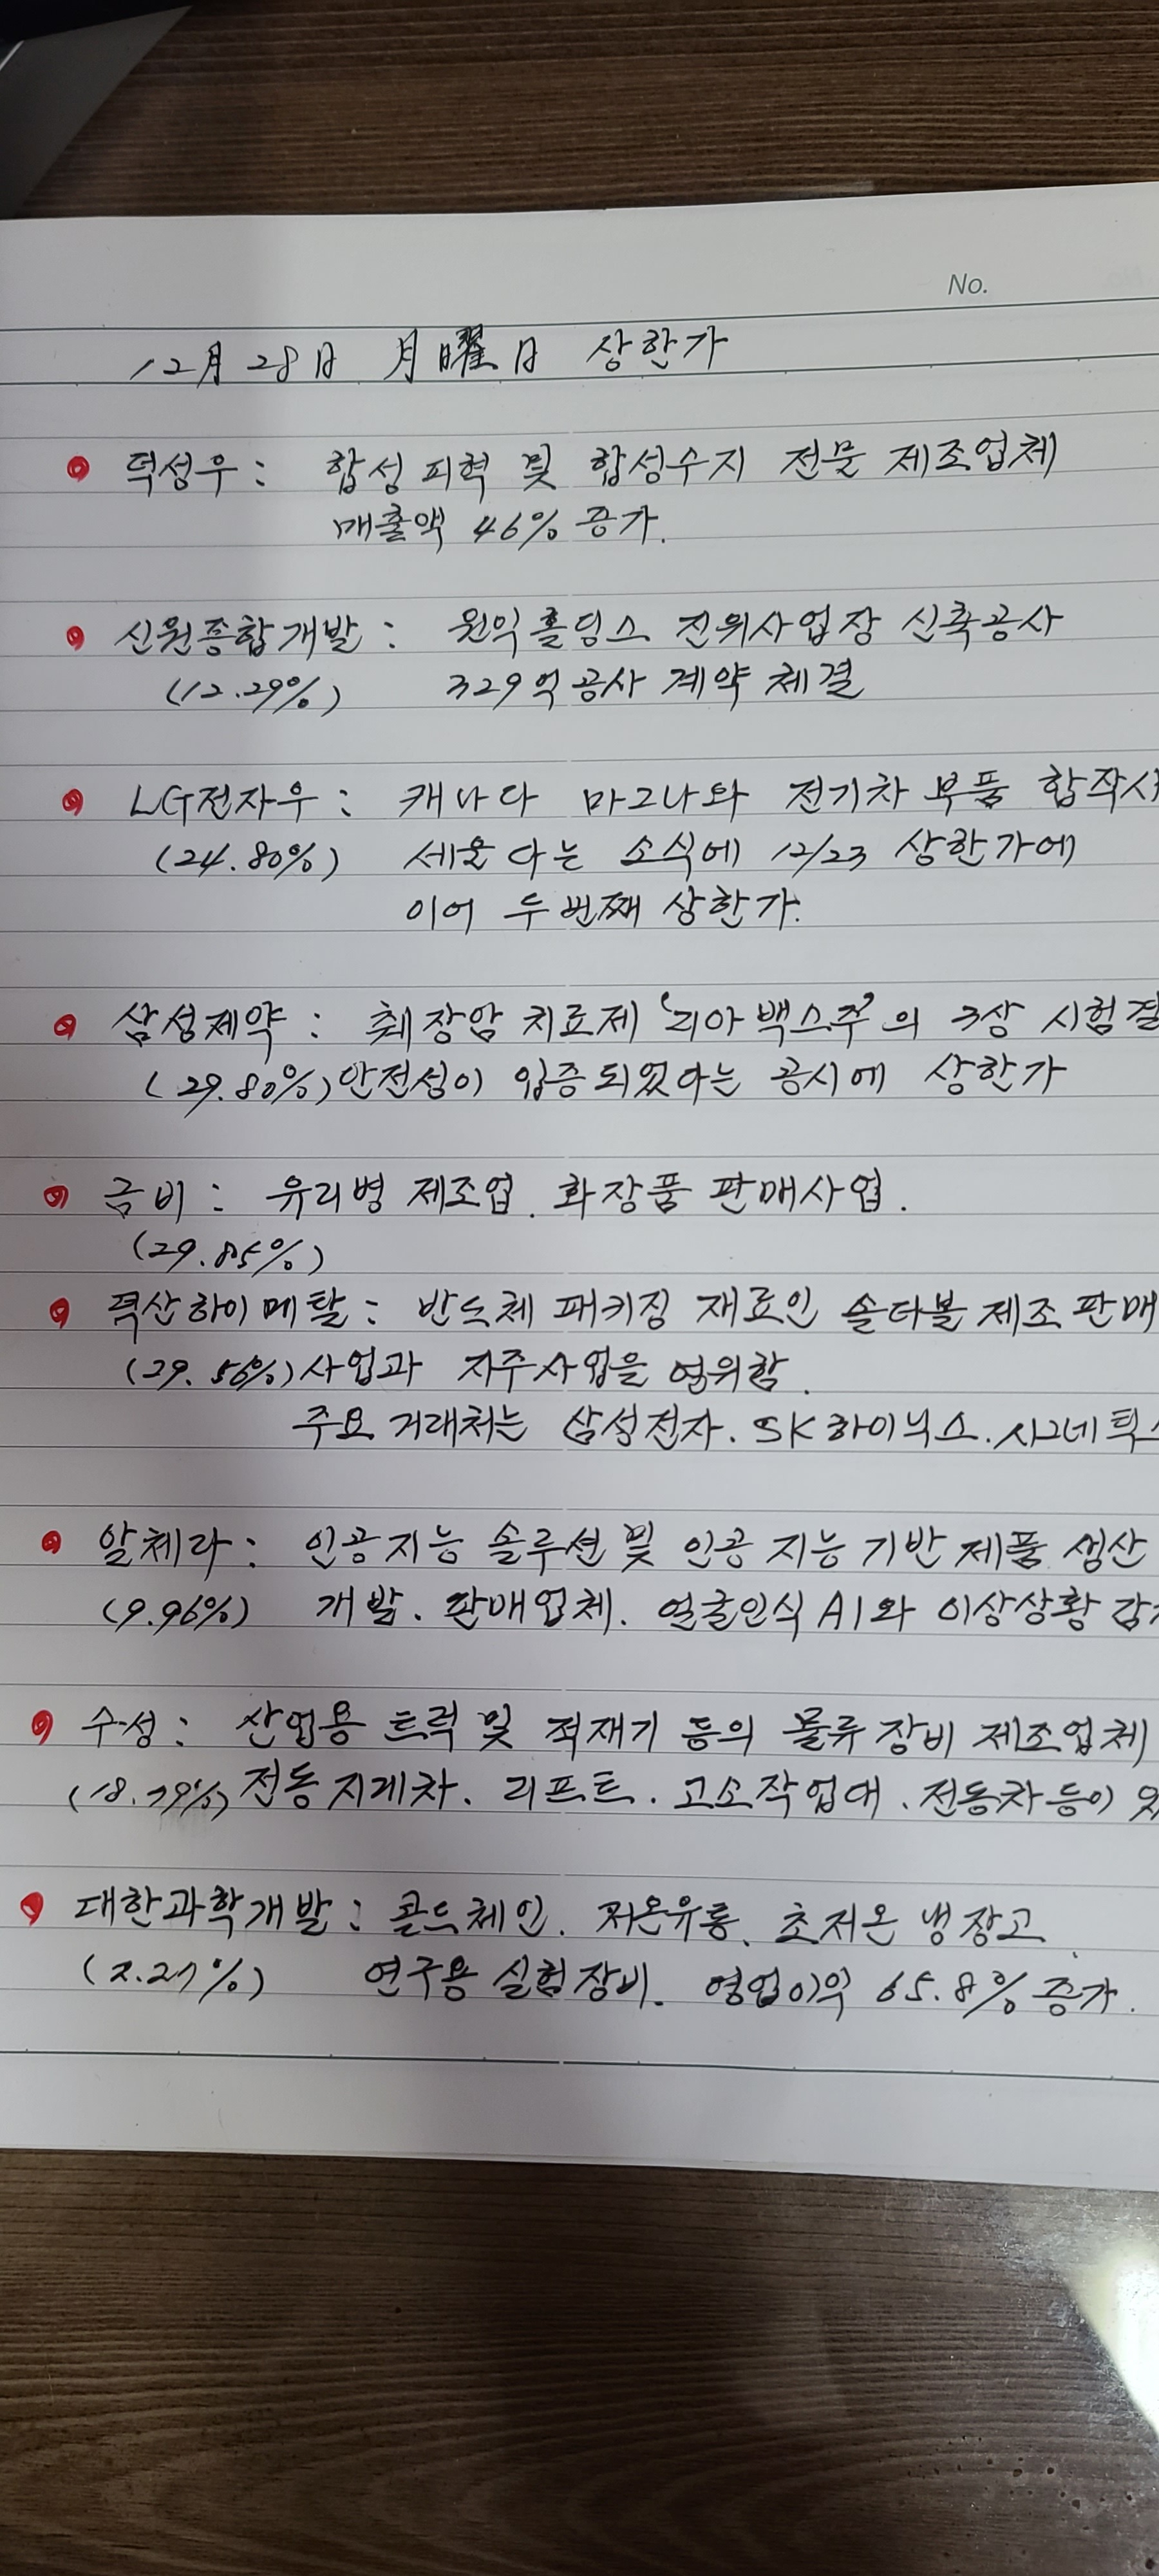 No.
12月 28日 月曜日 상한가
덕성우 : 합성피혁 및 합성수지 전문 제조업체
매출액 46% 증가.
신원종합개발 : 원익홀딩스 진위사업장 신축공사
(12.29%) 329억공사 계약 체결
LG전자우 : 캐나다 마그나와 전기차 부품 합작사
(24.80%) 세운다는 소식에 12/23 상한가에
이어 두번째 상한가.
삼성제약 : 췌장암 치료제 '리아백스주'의 3상 시험결
(29.80%) 안전성이 입증되었다는 공시에 상한가
금비 : 유리병 제조업. 화장품 판매사업.
(29.85%)
덕산하이메탈 : 반도체 패키징 재료인 솔더볼 제조 판매
(29.56%) 사업과 지주사업을 영위함.
주요 거래처는 삼성전자. SK하이닉스. 시그네틱스
알체라 : 인공지능 솔루션 및 인공지능 기반 제품 생산
(9.96%) 개발. 판매업체. 얼굴인식 AI와 이상상황 감
수성 : 산업용 트럭 및 적재기 등의 물류장비 제조업체
(18.79%) 전동지게차. 리프트. 고소작업대. 전동차등이
대한과학개발 : 콜드체인. 저온유통. 초저온 냉장고.
연구용 실험장비. 영업이익 65.8% 증가.